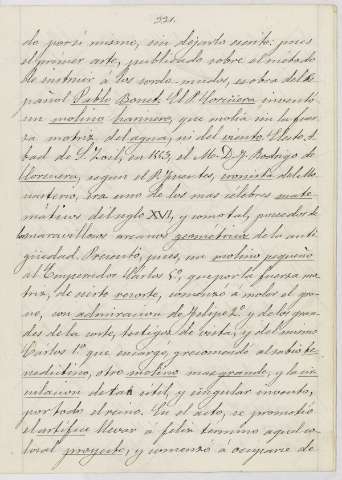 221.
do por sí mismo, sin dejarlo escrito: pues
el primer arte, publicado sobre el método
de instruir á los sordo-mudos, es obra del Es
pañol Pablo Bonet. El P. Corcuera inventó
un molino harinero, que molia sin la fuer
za motriz del agua, ni del viento. Electo A-
bad de S. Zoil, en 1553, el Mo. D. J. Rodrigo de
Corcuera, segun el P. Yuentes, cronista del Mo
nasterio, era uno de los mas célebres mate-
máticos del siglo XVI, y como tal, poseedor de
los maravillosos arcanos geométricos de la anti
güedad. Presentó, pues, un molino pequeño
al Emperador Carlos 5º, que por la fuerza mo
triz, de cierto resorte, comenzó á moler el gra
no, con admiracion de Felipe 2º. y de los gran
des de la corte, testigos de vista, y del mismo
Carlos 1º. que encargó, y recomendó al sabio be
nedictino, otro molino mas grande, y la cir
culacion de tan útil, y singular invento,
por todo el reino. En el acto, se prometió
el artífice llevar á feliz termino aquel co-
losal proyecto, y comenzó á ocuparse de